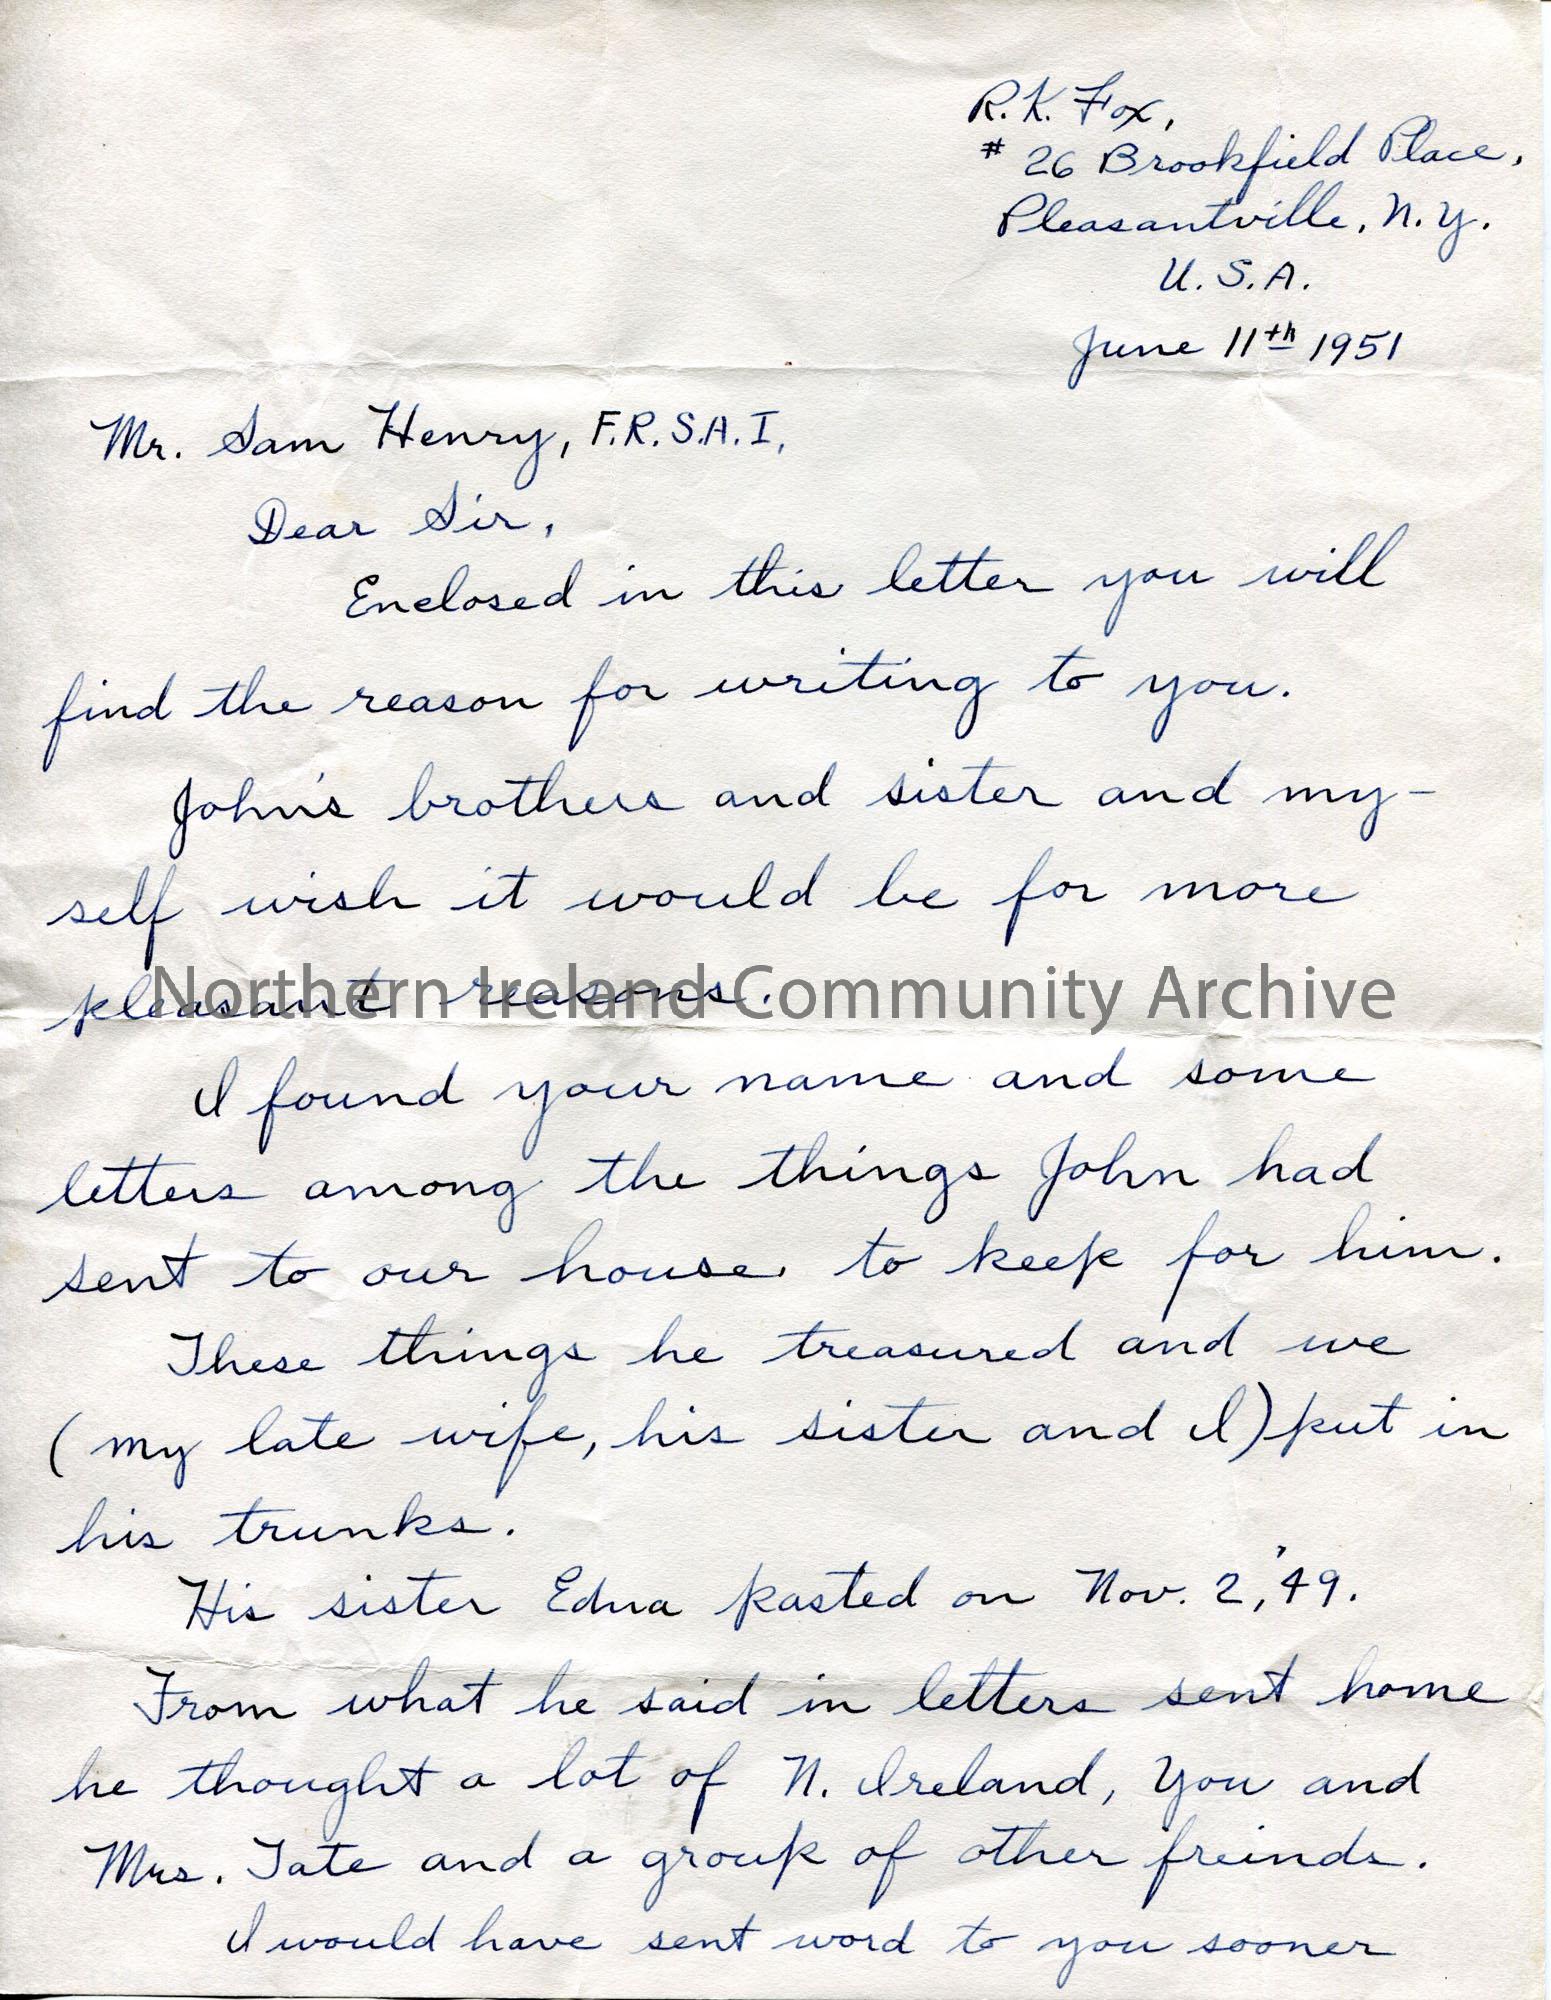 R.K. Fox,
# 26 Brookfield Place,
Pleasantville, N.Y.
U.S.A.
June 11th 1951
Mr. Sam Henry, F.R.S.A.I,
Dear Sir,
Enclosed in this letter you will
find the reason for writing to you.
John's brothers and sister and my-
self wish it would be for more
pleasant reasons.
Northern Ireland Community Archive
I found your name and some
letters among the things John had
sent to our house to keep for him.
These things he treasured and we
(my late wife, his sister and I) put in
his trunks.
His sister Edna pasted on Nov. 2,'49.
From what he said in letters sent home
he thought a lot of N. Ireland, you and
Mrs. Tate and a group of other freinds.
I would have sent word to you sooner